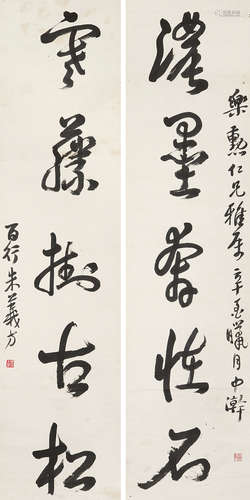 濃墨奔怪石
樂勲仁兄雅屬 辛丑臘月中澣
寒藤掛古松
百行朱義方